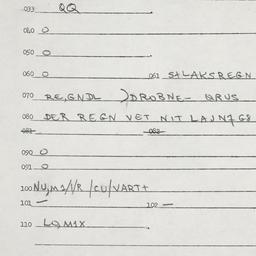 033 QQ
040 O
050 O
060 O 061 S+LAKSREGN
070 RE,GNDL )DROBNE- QRUS
080 DER REGN VET NIT LAJNZ G8
081 082
090 O
091 O
100 NU,M1/VR/CU/VART+
101 — 102 —
110 LQ,M1X